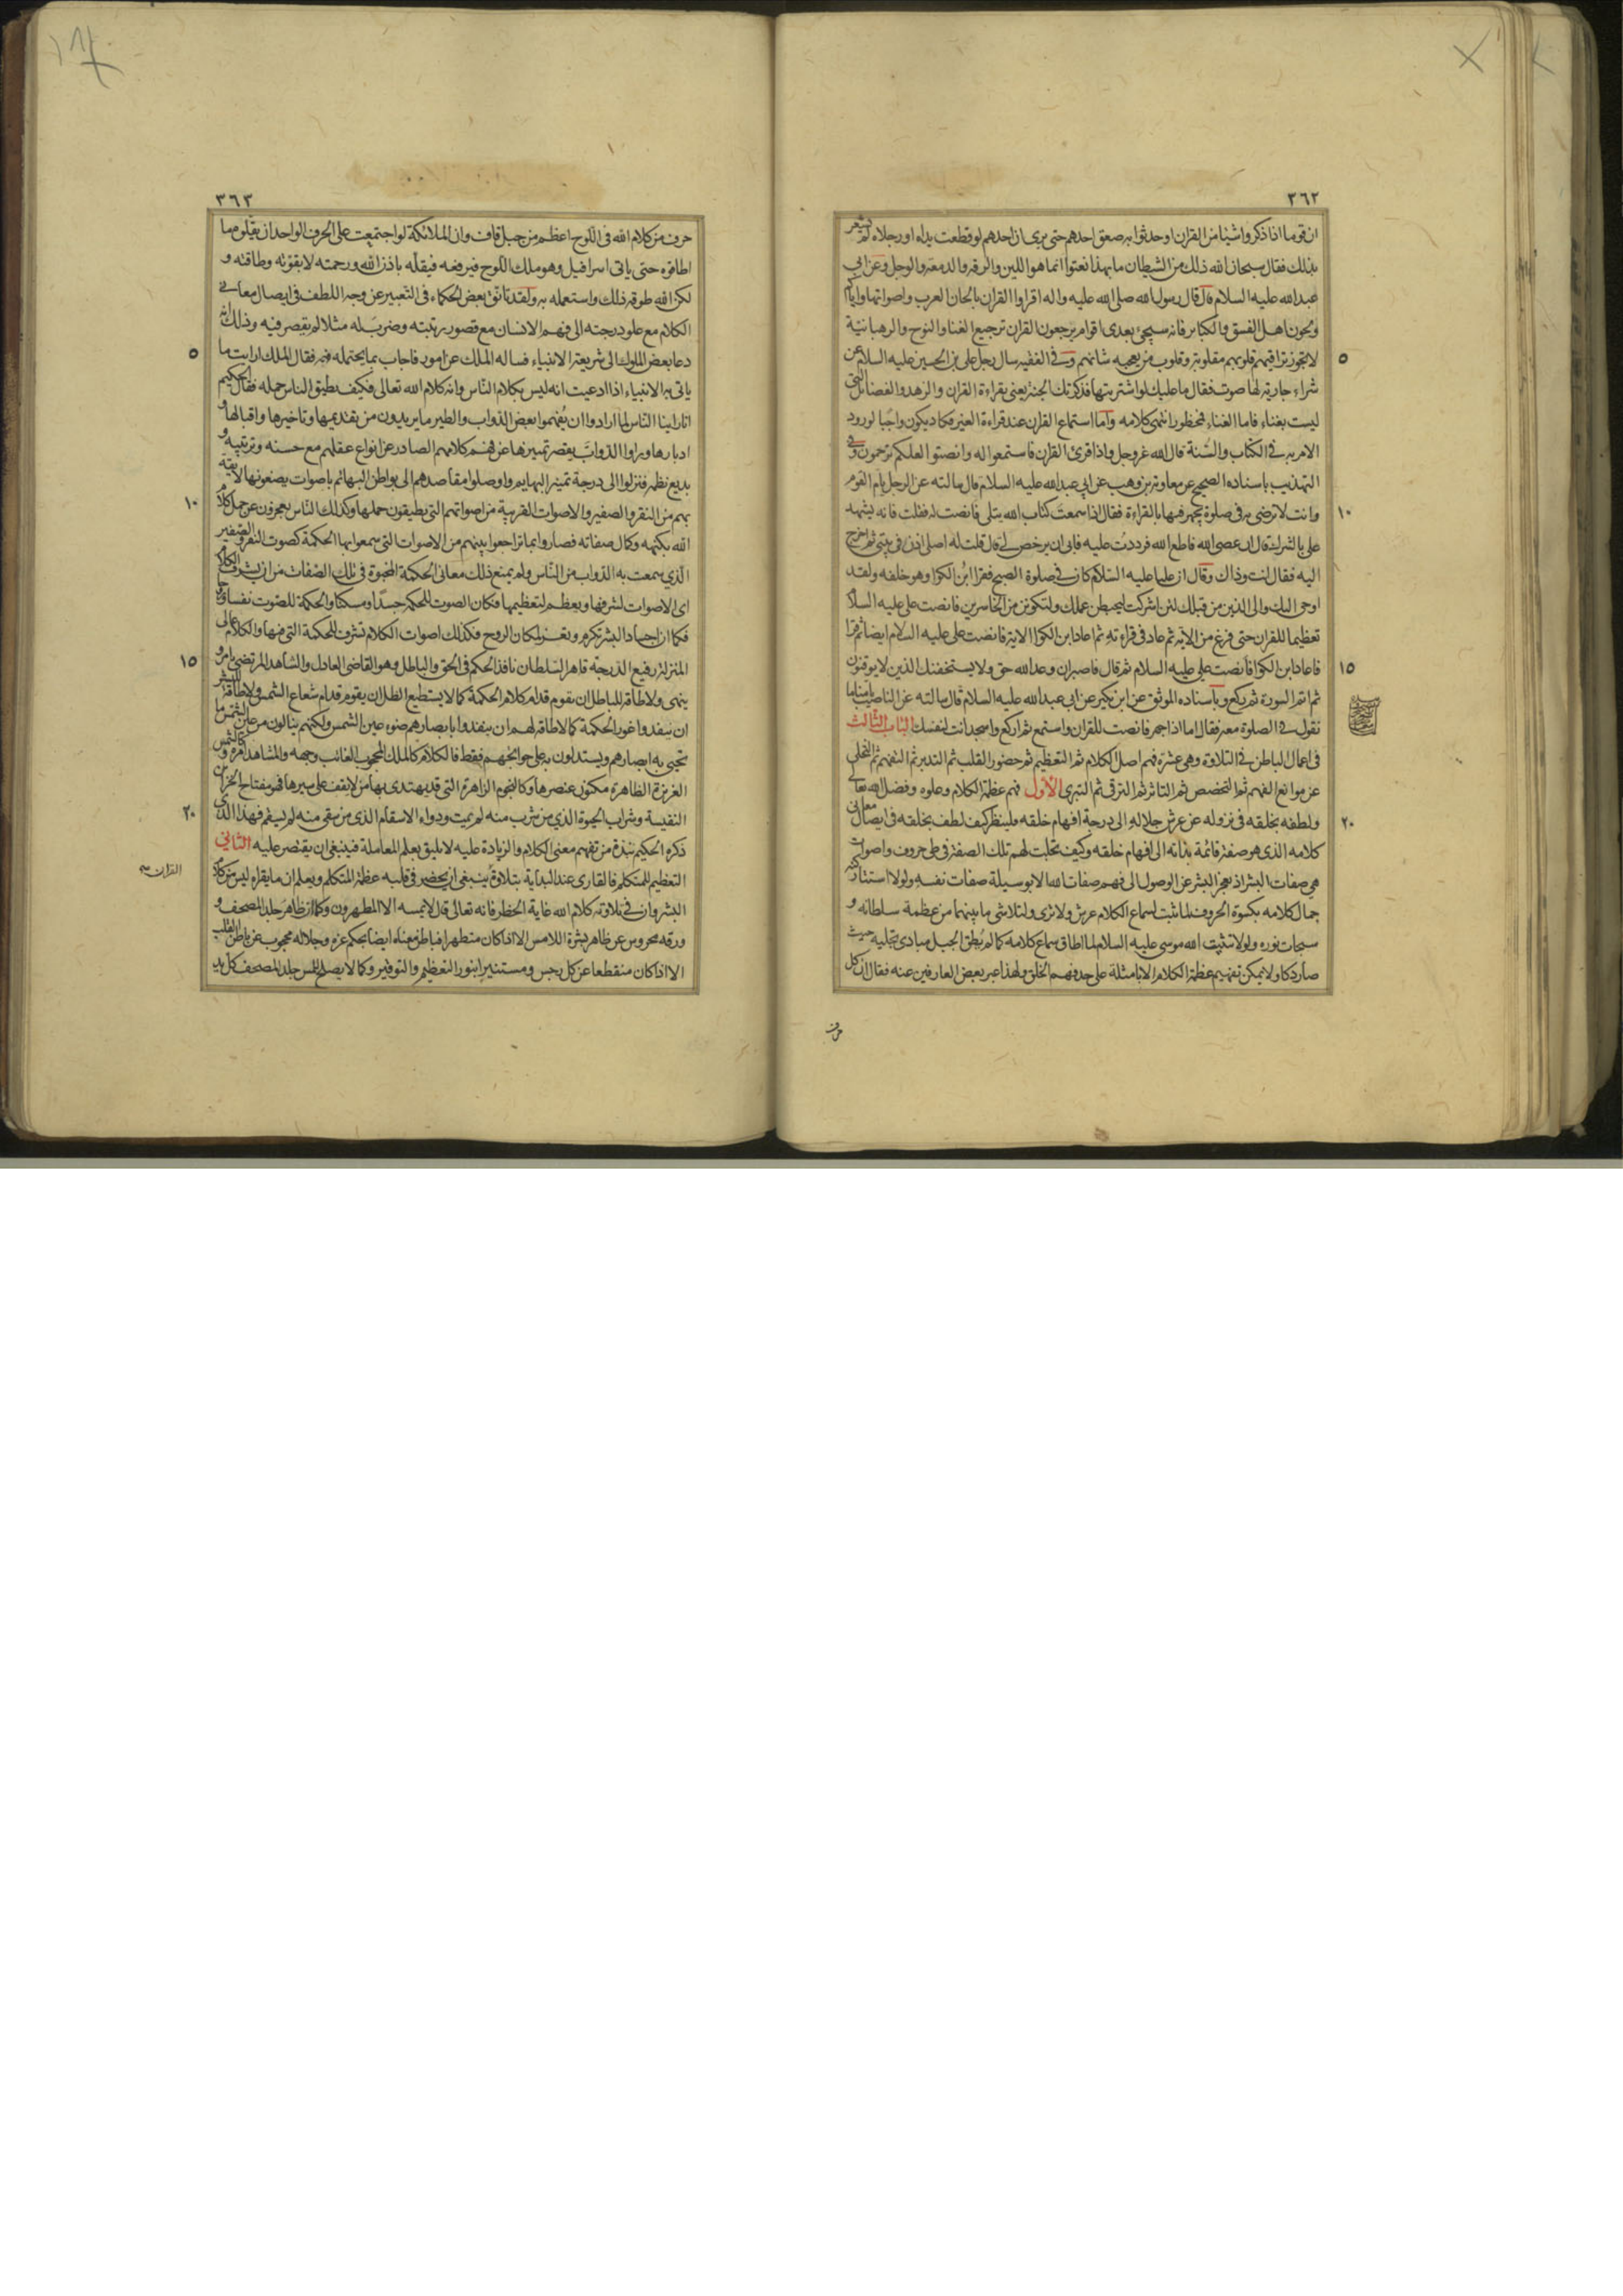 ٣٦٢
ان قوما اذا ذكروا شيئا من القران او حدثوا به صعق احدهم حتى يرى ان احدهم لو قطعت يداه او رجلاه لم يشعر
بذلك فقال سبحان الله ذلك من الشيطان ما بهذا نعتوا انما هو اللين والرقة والدمعة والوجل وعن ابي
عبدالله عليه السلام قال قال رسول الله صلى الله عليه واله اقراوا القران بالحان العرب واصواتها واياكم
ولحون اهل الفسق والكبائر فانه سيجئ بعدى اقوام يرجعون القران ترجيع الغنا والنوح والرهبانية
٥
لا يجوز تراقيهم قلوبهم مقلوبة وقلوب من يعجبه شانهم وفي الفقيه سال رجل علي بن الحسين عليه السلام عن
شراء جارية لها صوت فقال ما عليك لو اشتريتها فذكرتك الجنة يعنى بقراءة القران والزهد والفضائل التي
ليست بغناء فاما الغناء فمحظور انتهى كلامه واما استماع القران عند قراءة الغير فكاد يكون واجبا لورود
الامر به في الكتاب والسنة قال الله عز وجل واذا قرئ القران فاستمعوا له وانصتوا لعلكم ترحمون وفي
التهذيب باسناده الصحيح عن معاوية بن وهب عن ابي عبدالله عليه السلام قال سالته عن الرجل يام القوم
١٠
وانت لا ترضى به في صلوة يجهر فيها بالقراءة فقال اذا سمعت كتاب الله يتلى فانصت له فقلت فانه يشهد
على بالشرك قال ان عصى الله فاطع الله فرددت عليه فابى ان يرخص لي قال قلت له اصلى اذن في بيتي ثم اخرج
اليه فقال انت وذاك وقال ان عليا عليه السلام كان في صلوة الصبح فقرا ابن الكوا وهو خلفه ولقد
اوحى اليك والى الذين من قبلك لئن اشركت ليحبطن عملك ولتكونن من الخاسرين فانصت على عليه السلام
تعظيما للقران حتى فرغ من الاية ثم عاد في قراءته ثم اعاد ابن الكوا الاية فانصت على عليه السلام ايضا ثم قرا
١٥
فاعاد ابن الكوا فانصت علي عليه السلام ثم قال فاصبر ان وعد الله حق ولا يستخفنك الذين لا يوقنون
ثم اتم السورة ثم ركع وباسناده الموثق عن ابن بكير عن ابي عبدالله عليه السلام قال سالته عن الناصب يامنا ما
نقول في الصلوة معه فقال اما اذا جهر فانصت للقران واستمع ثم اركع واسجد انت لنفسك الباب الثالث
فى اعمال الباطن في التلاوة وهي عشرة فهم اصل الكلام ثم التعظيم ثم حضور القلب ثم التدبر ثم التفهم ثم التخلي
عن موانع الفهم ثم التخصص ثم التاثر ثم الترقى ثم التبرى الاول فهم عظمة الكلام وعلوه وفضل الله تعالى
٢٠
ولطفه بخلقه في نزوله عن عرش جلاله الى درجة افهام خلقه فلينظر كيف لطف بخلقه في ايصال معانى
كلامه الذى هو صفة قائمة بذاته الى افهام خلقه وكيف تجلت لهم تلك الصفة في طى حروف واصوات
هي صفات البشر اذ يعجز البشر عن الوصول الى فهم صفات الله الا بوسيلة صفات نفسه ولولا استتار كنه
جمال كلامه بكسوة الحروف لما ثبت لسماع الكلام عرش ولا ثرى ولتلاشى ما بينهما من عظمة سلطانه و
سبحات نوره ولولا تثبيت الله موسى عليه السلام لما اطاق سماع كلامه كما لم يطق الجبل مبادى تجليه حيث
صار دكا ولا يمكن تفهيم عظمة الكلام الا بامثلة على حد فهم الخلق ولهذا عبر بعض العارفين عنه فقال ان كل
حرف
٣٦٣
حرف من كلام الله فى اللوح اعظم من جبل قاف وان الملائكة لو اجتمعت على الحرف الواحد ان يقلوه ما
اطاقوه حتى ياتى اسرافيل وهو ملك اللوح فيرفعه فيقله باذن الله ورحمته لا بقوته وطاقته و
لكن الله طوقه ذلك واستعمله به ولقد تانق بعض الحكماء في التعبير عن وجه اللطف فى ايصال معانى
الكلام مع علو درجته الى فهم الانسان مع قصور رتبته وضرب له مثلا لم يقصر فيه وذلك انه
٥
دعا بعض الملوك الى شريعة الانبياء فساله الملك عن امور فاجاب بما يحتمله فهمه فقال الملك ارايت ما
ياتى به الانبياء اذا ادعيت انه ليس بكلام الناس وانه كلام الله تعالى فكيف يطيق الناس حمله فقال الحكيم
انا راينا الناس لما ارادوا ان يفهموا بعض الدواب والطير ما يريدون من تقديمها وتاخيرها واقبالها و
ادبارها وراوا الدواب يقصر تمييزها عن فهم كلامهم الصادر عن انواع عقلهم مع حسنه وترتيبه و
بديع نظمه فنزلوا الى درجة تمييز البهايم واوصلوا مقاصدهم الى بواطن البهائم باصوات يضعونها لايقة
١٠
بهم من النقر والصفير والاصوات القريبة من اصواتهم التي يطيقون حملها وكذلك الناس يعجزون عن حمل كلام
الله بكنهه وكمال صفاته فصاروا بما تراجعوا بينهم من الاصوات التي سمعوا بها الحكمة كصوت النقر والصفير
الذي سمعت به الدواب من الناس ولم يمنع ذلك معانى الحكمة المخبوة في تلك الصفات من ان يشرف الكلام
اى الاصوات لشرفها ويعظم لتعظيمها فكان الصوت للحكم جسدا ومسكنا والحكمة للصوت نفسا وروحا
فكما ان اجساد البشر تكرم وتعز لمكان الروح فكذلك اصوات الكلام تشرف للحكمة التي فيها والكلام عالى
١٥
المنزلة رفيع الدرجة قاهر السلطان نافذ الحكم في الحق والباطل وهو القاضى العادل والشاهد المرتضى يامر و
ينهى ولا طاقة للباطل ان يقوم قدام كلام الحكمة كما لا يستطيع الظل ان يقوم قدام شعاع الشمس ولا طاقة للبشر
ان ينفدوا غور الحكمة كما لا طاقة لهم ان ينفدوا بابصارهم ضوء عين الشمس ولكنهم ينالون من عين الشمس ما
تحيى به ابصارهم ويستدلون به على حوايجهم فقط فالكلام كالملك المحجوب الغائب وجهه والمشاهد امره وكالشمس
الغزيزة الظاهرة مكنون عنصرها وكالنجوم الزاهرة التي قد يهتدى بها من لا يقف على سيرها فهو مفتاح الخزائن
٢٠
النفيسة وشراب الحيوة الذي من شرب منه لم يمت ودواء الاسقام الذى من سقى منه لم يسقم فهذا الذى
ذكره الحكيم نبذة من تفهيم معنى الكلام والزيادة عليه لا يليق بعلم المعاملة فينبغى ان يقتصر عليه الثاني
التعظيم للمتكلم فالقارى عند البداية بتلاوة ينبغى ان يحضر في قلبه عظمة المتكلم ويعلم ان ما يقراه ليس من كلام
القران
البشر وان في تلاوة كلام الله غاية الخطر فانه تعالى قال لا يمسه الا المطهرون وكما ان ظاهر جلد المصحف و
ورقه محروس عن ظاهر بشرة اللامس الا اذا كان متطهرا فباطن معناه ايضا بحكم عزه وجلاله محجوب عن باطن القلب
الا اذا كان منقطعا عن كل رجس ومستنيرا بنور التعظيم والتوقير وكما لا يصلح للمس جلد المصحف كل يد